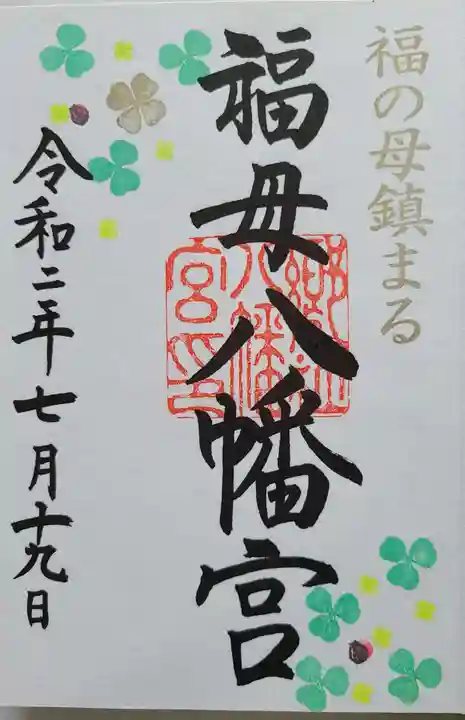 福の母鎮まる
福母八幡宮
令和二年七月十九日